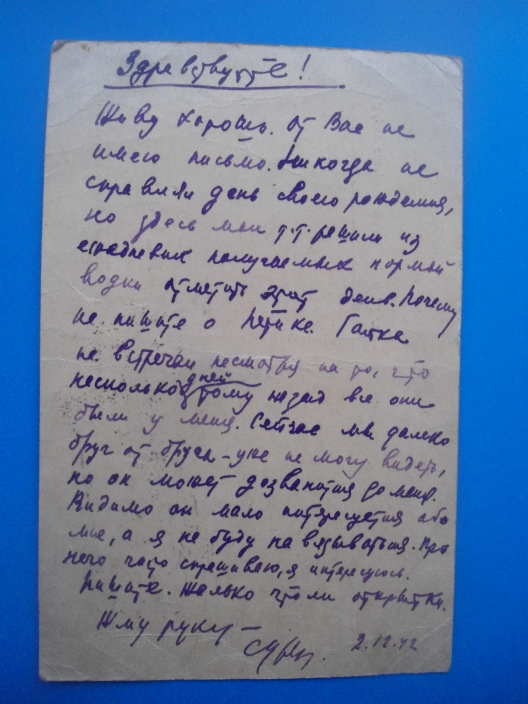 Здравствуйте!
Живу хорошо. От Вас не
имею письмо. Никогда не
справляли день своего рождения,
но здесь мои т.т. решили из
ежедневных получаемых нормой
водки отметить этот день. Почему
не пишите о Петике.
не встречал несмотря на то, что
несколько дней тому назад все они
были у меня. Сейчас мы далеко
друг от друга - уже не могу видеть,
но он может дозвонится до меня.
Видимо он мало интересуется обо
мне, а я не буду навязываться. Про
него часто спрашиваю, я интересуюсь.
Пишите. Только что ли открытки.
Жму руку -
2.12.42